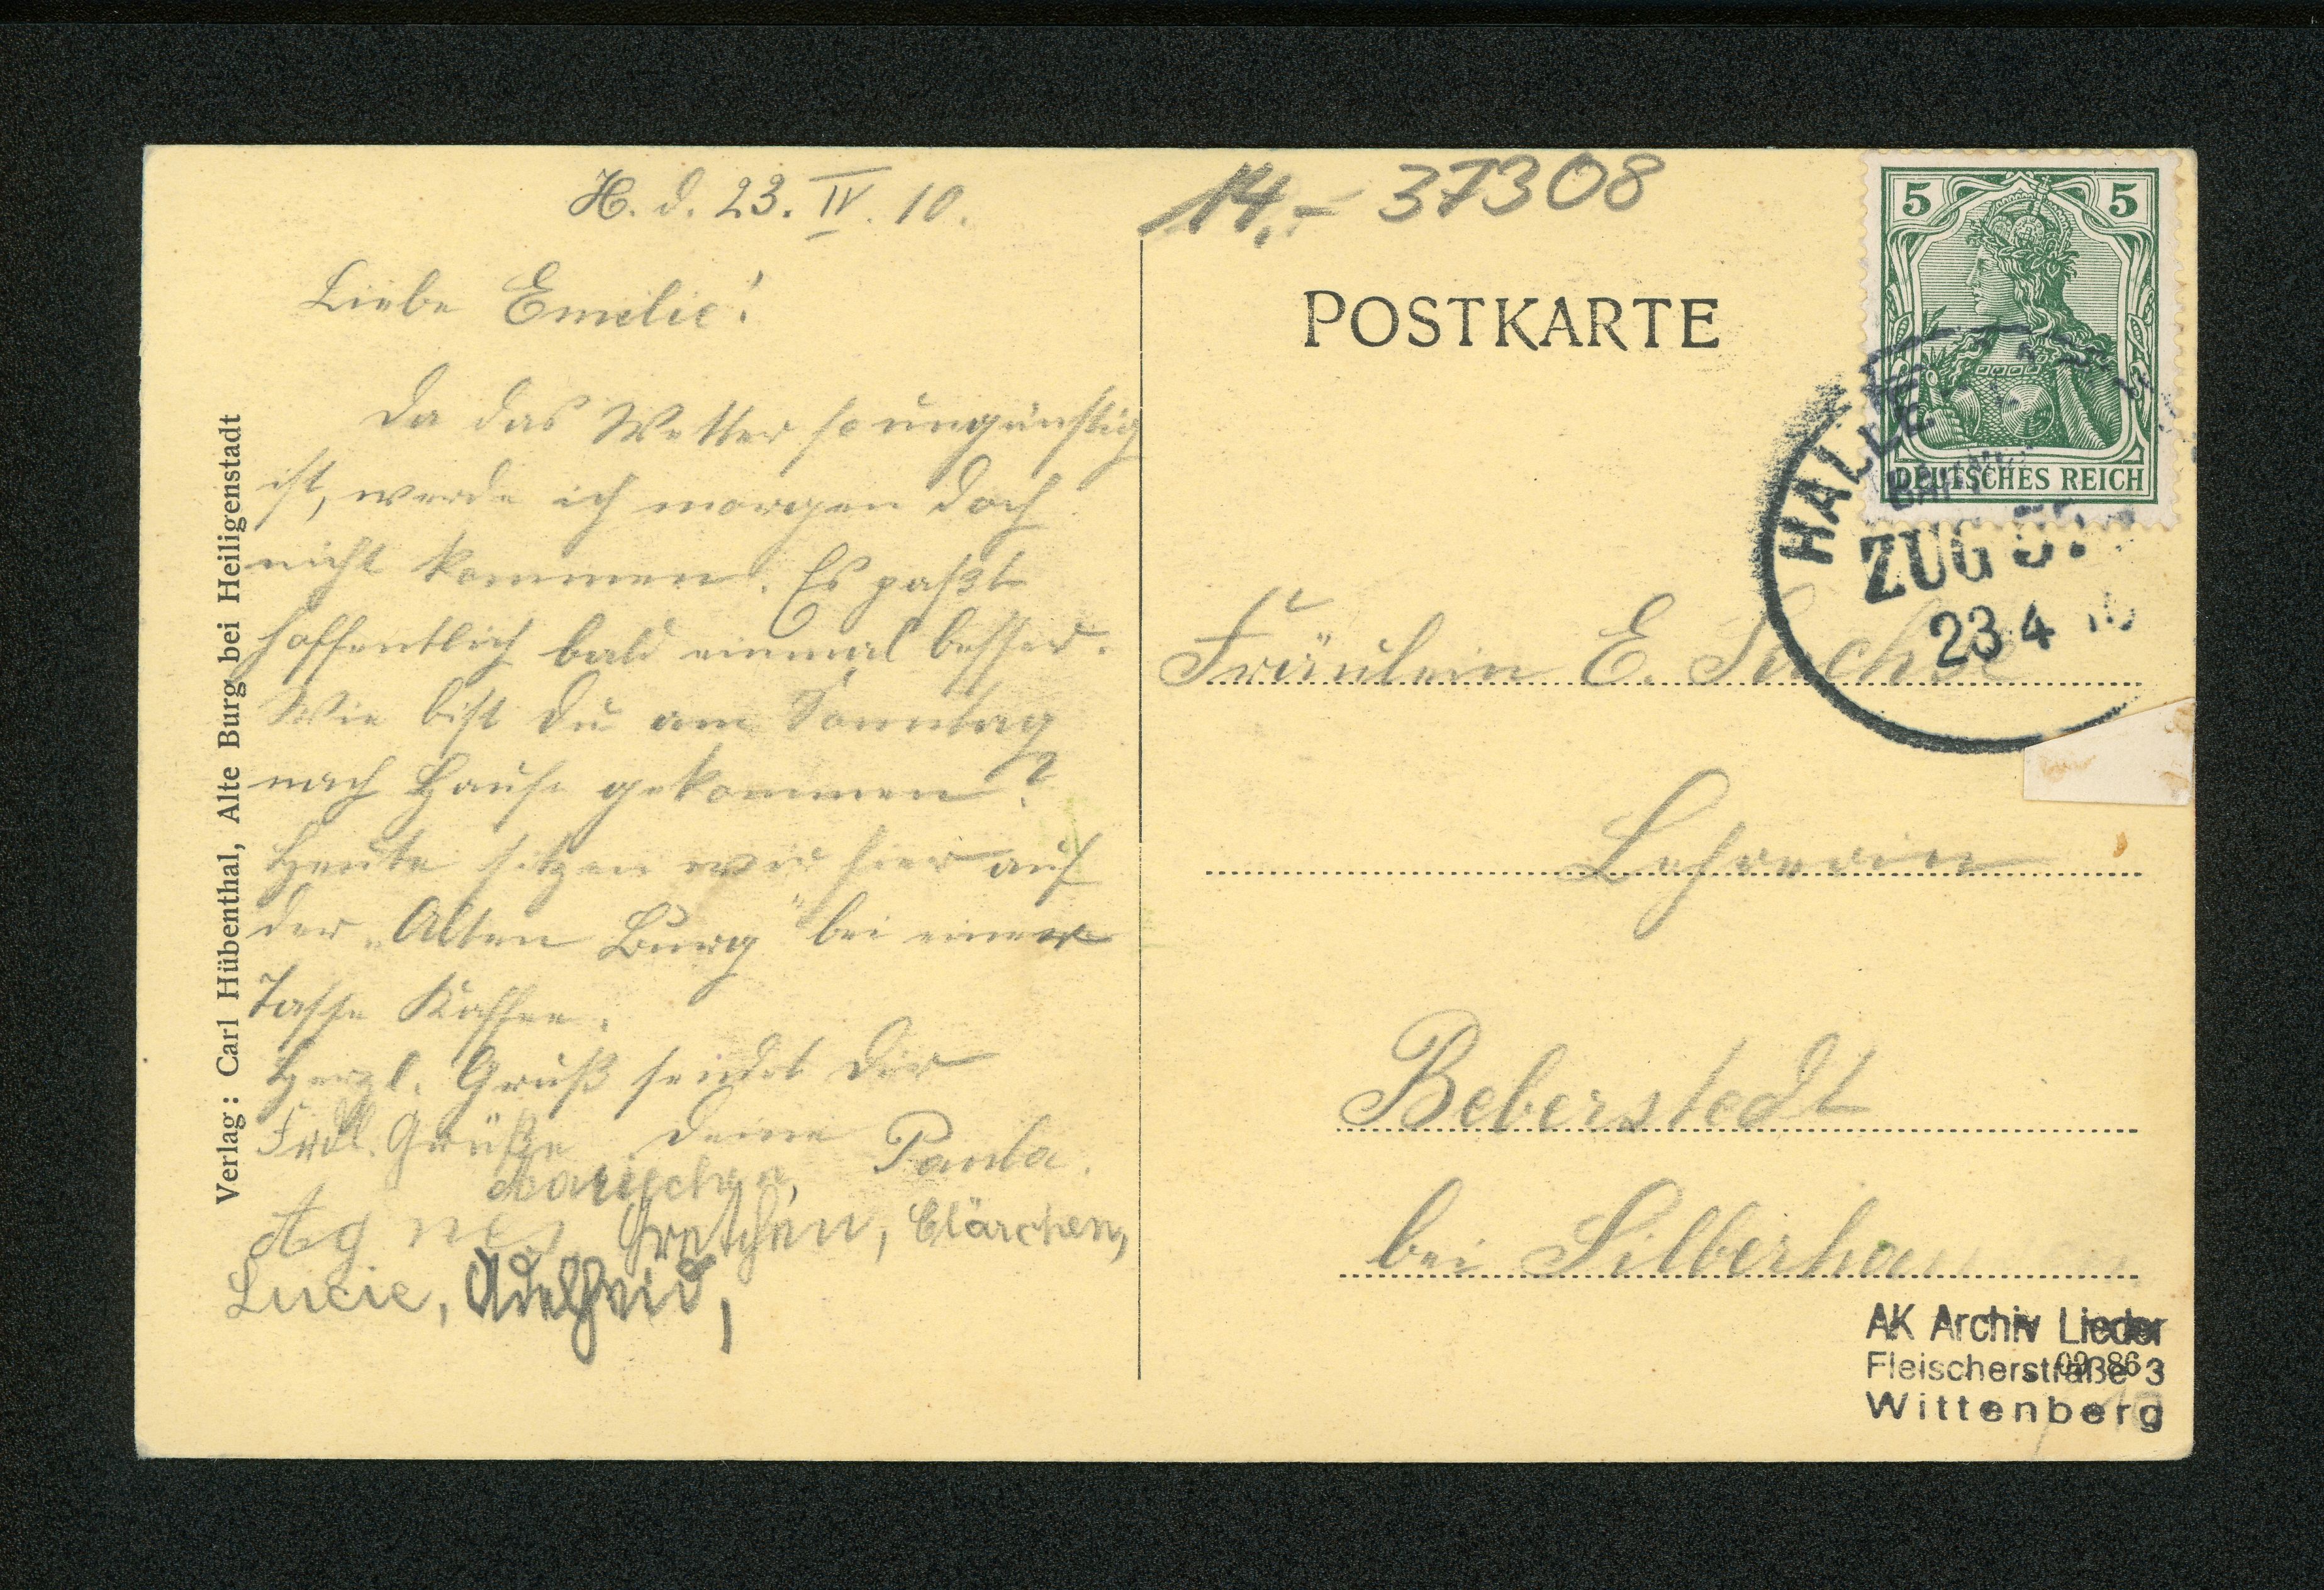 H. d. 23. IV. 10.
Liebe Emilie!
Da das Wetter so ungünstig
ist, werde ich morgen doch
nicht kommen. Es paßt
hoffentlich bald einmal besser.
Wie bist Du am Sonntag
nach Hause gekommen?
Heute sitzen wir hier auf
der „Alten Burg" bei einer
Tasse Kaffee.
Herzl. Gruß sendet Dir
Frdl. Grüße deine Paula.
Agnes Gretchen, Clärchen,
Lucie, Adelheid,
Verlag: Carl Hübenthal, Alte Burg bei Heiligenstadt
14,- 37308
POSTKARTE
5 5
DEUTSCHES REICH
HALLE
ZUG
23 4
Fräulein E. Sachse
Lehrerin
Beberstedt
bei Silberhau
AK Archiv Lieder
Fleischerstraße 3
Wittenberg